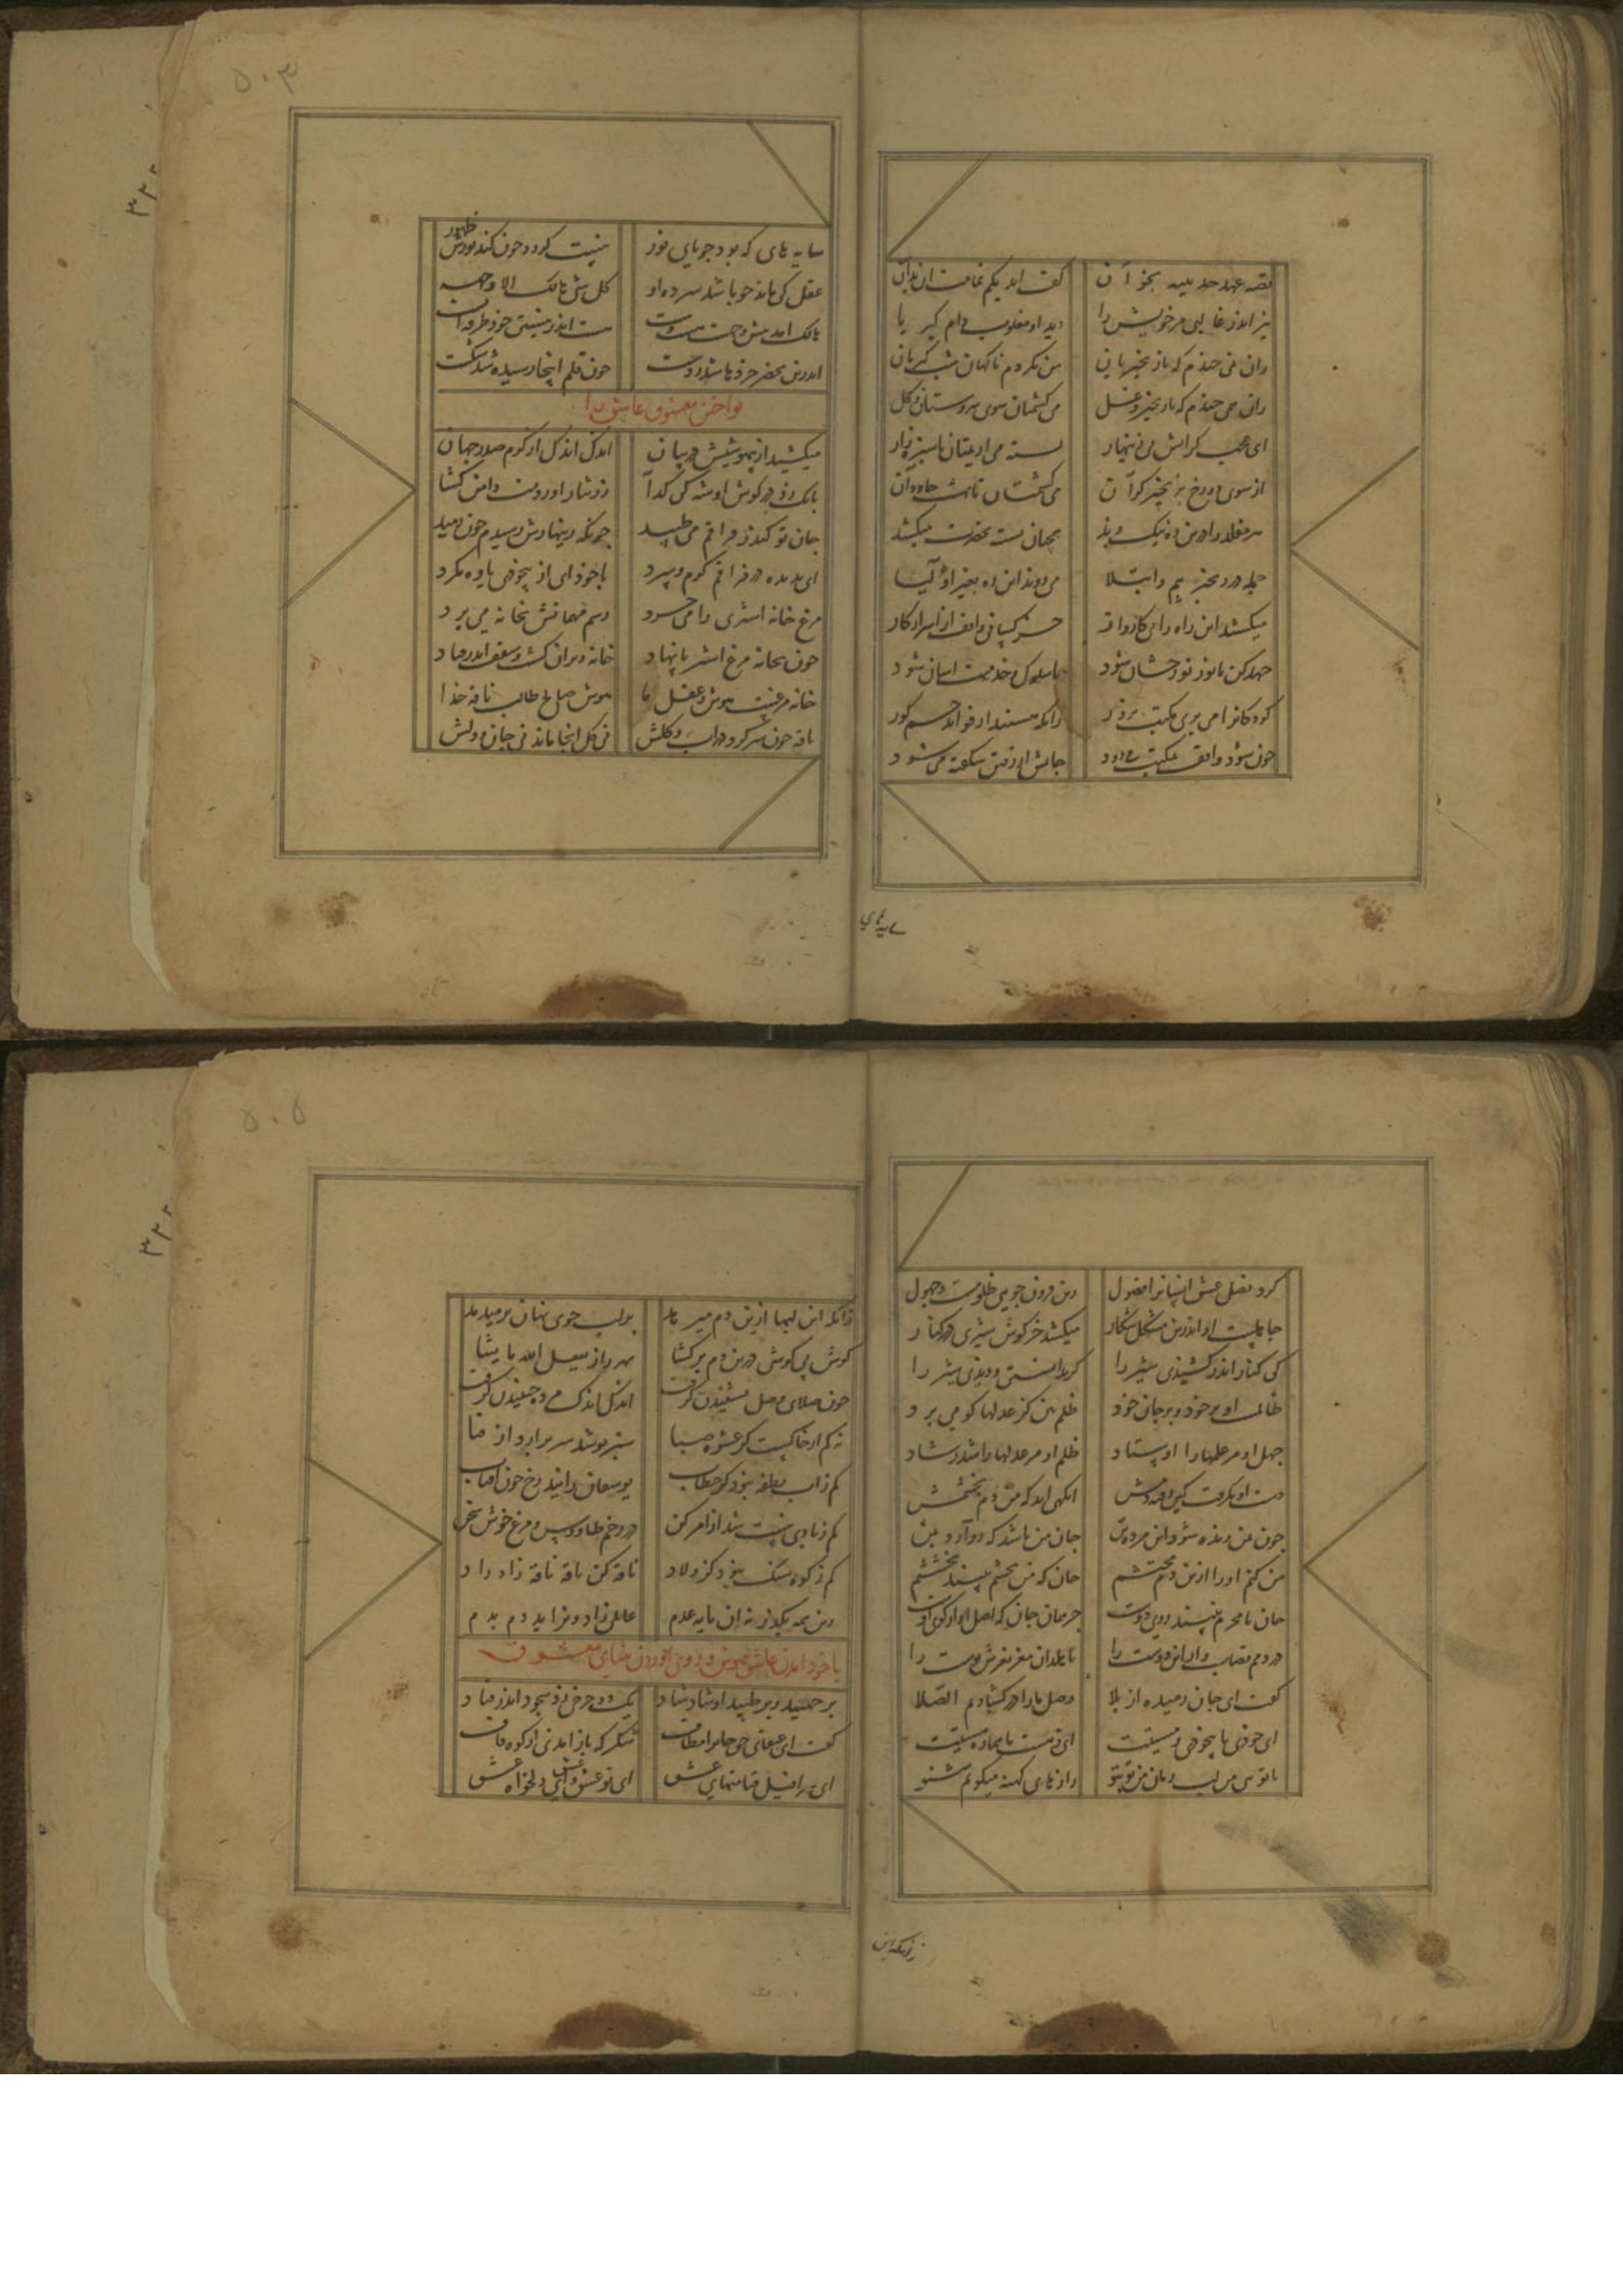 قصه عهد حدیبیه بخوان کف ایدیکم تمامت زان بدان
نیز اندر غالبی مر خویش را دید او مغلوب دام کبریا
زان نمی خندم که باز نجیرتان من بکردم ناکهان شبکیرتان
زان همی خندم که با زنجیر و غل می کشمتان سوی سروستان و کل
ای عجب کز آتش بی زینهار بسته می آریمتان تا سبزه زار
از سوی دوزخ بزنجیر کران می کشمتان تا بهشت جاودان
هر مقلد را درین ره نیک و بد همچنان بسته بحضرت میکشد
جمله در زنجیر بیم و ابتلا می روند این ره بغیر اولیا
میکشند این راه را بیکاروار جز کسانی واقف از اسرار کار
جهد کن تا نور تو رخشان شود تا سلوک و خدمتت آسان شود
کودکانرا می بری مکتب بزور زانکه هستند از فواید چشم کور
چون شود واقف بمکتب می دود جانش از رفتن شکفته می شود
سایهای
۵۰۳
سایه های که بود جویای نور نیست کردد چون کند نورش ظهور
عقل کی ماند چو باشد سرده او کل شی هالک الا وجهه
هالک آمد پیش وجهش هست و نیست هستی اندر نیستی خود طرفه ایست
اندرین محضر خردها شد ز دست چون قلم اینجا رسیده شد شکست
نواختن معشوق عاشق را
میکشید از بیهشیش در بیان اندک اندک از کرم صدر جهان
بانک زد در کوش او شه کای کدا زر نثار آوردمت دامن کشا
جان تو کندر فراقم می طپید چونکه زینهارش رسیدم چون رمید
ای بدیده در فراقم کرم و سرد با خود آی از بیخودی و باز کرد
مرغ خانه اشتری را می خرد رسم مهمانش بخانه می برد
چون بخانه مرغ اشتر پا نهاد خانه ویران کشت و سقف اندر فتاد
خانه مرغیست هوش و عقل ما هوش صالح طالب ناقه خدا
ناقه چون سر کرد در آب و کلش نی کل آنجا ماند نی جان و دلش
کرد فضل عشق انسانرا فضول زین فزون جویی ظلومست و جهول
جاهلست او اندرین مشکل شکار میکشد خرکوش شیری در کنار
کی کنار اندر کشیدی شیر را کر بدانستی و دیدی شیر را
ظالمست او بر خود و بر جان خود ظلم بین کز عدلها کو می برد
جهل او مر علمها را اوستاد ظلم او مر عدلها را شد رشاد
دست او بکرفت کین رفته دمش آنکهی آید که من دم بخشمش
چون بمن زنده شود این مرده تن جان من باشد که رو آرد بمن
من کنم او را ازین دم محتشم جان که من بخشم ببیند بخششم
جان نامحرم نبیند روی دوست جز همان جان که اصل او از کوی اوست
در دمم قصاب وار این دوست را تا بلد آن مغز نغزش پوست را
کفت ای جان رمیده از بلا وصل ما را در کشادیم الصلا
ای خود ما بیخودی و مستیت ای ز هست ما هماره هستیت
با تو بی لب این زمان من نو بنو رازهای کهنه میکویم شنو
زانکه این
۵۰۵
زانکه این لبها ازین دم میرمد بر لب جوی نهان برمیدمد
کوش بی کوشی درین دم برکشا بهر راز یفعل الله ما یشا
چون صلای وصل بشنیدن کرفت اندک اندک مرده جنبیدن کرفت
نه کم از خاکست کز عشوه صبا سبز پوشد سر برآرد از فنا
کم ز آب نطفه نبود کز خطاب یوسفان زایند رخ چون آفتاب
کم ز بادی نیست شد از امر کن در رحم طاووس و مرغ خوش سخن
کم ز کوه سنک نبود کز ولاد ناقه کان ناقه ناقه زاد زاد
زین همه بکذر نه آن مایه عدم عالمی زاد و بزاید دم بدم
با خود آمدن عاشق بیهوش و روی آوردن بثنای معشوق
بر جهید و بر طپید او شاد شاد یک دو چرخی زد سجود اندر فتاد
کفت ای عنقای حق جانرا مطاف شکر که باز آمدی از کوه قاف
ای سرافیل قیامتهای عشق ای تو عشق عشق وای دلخواه عشق